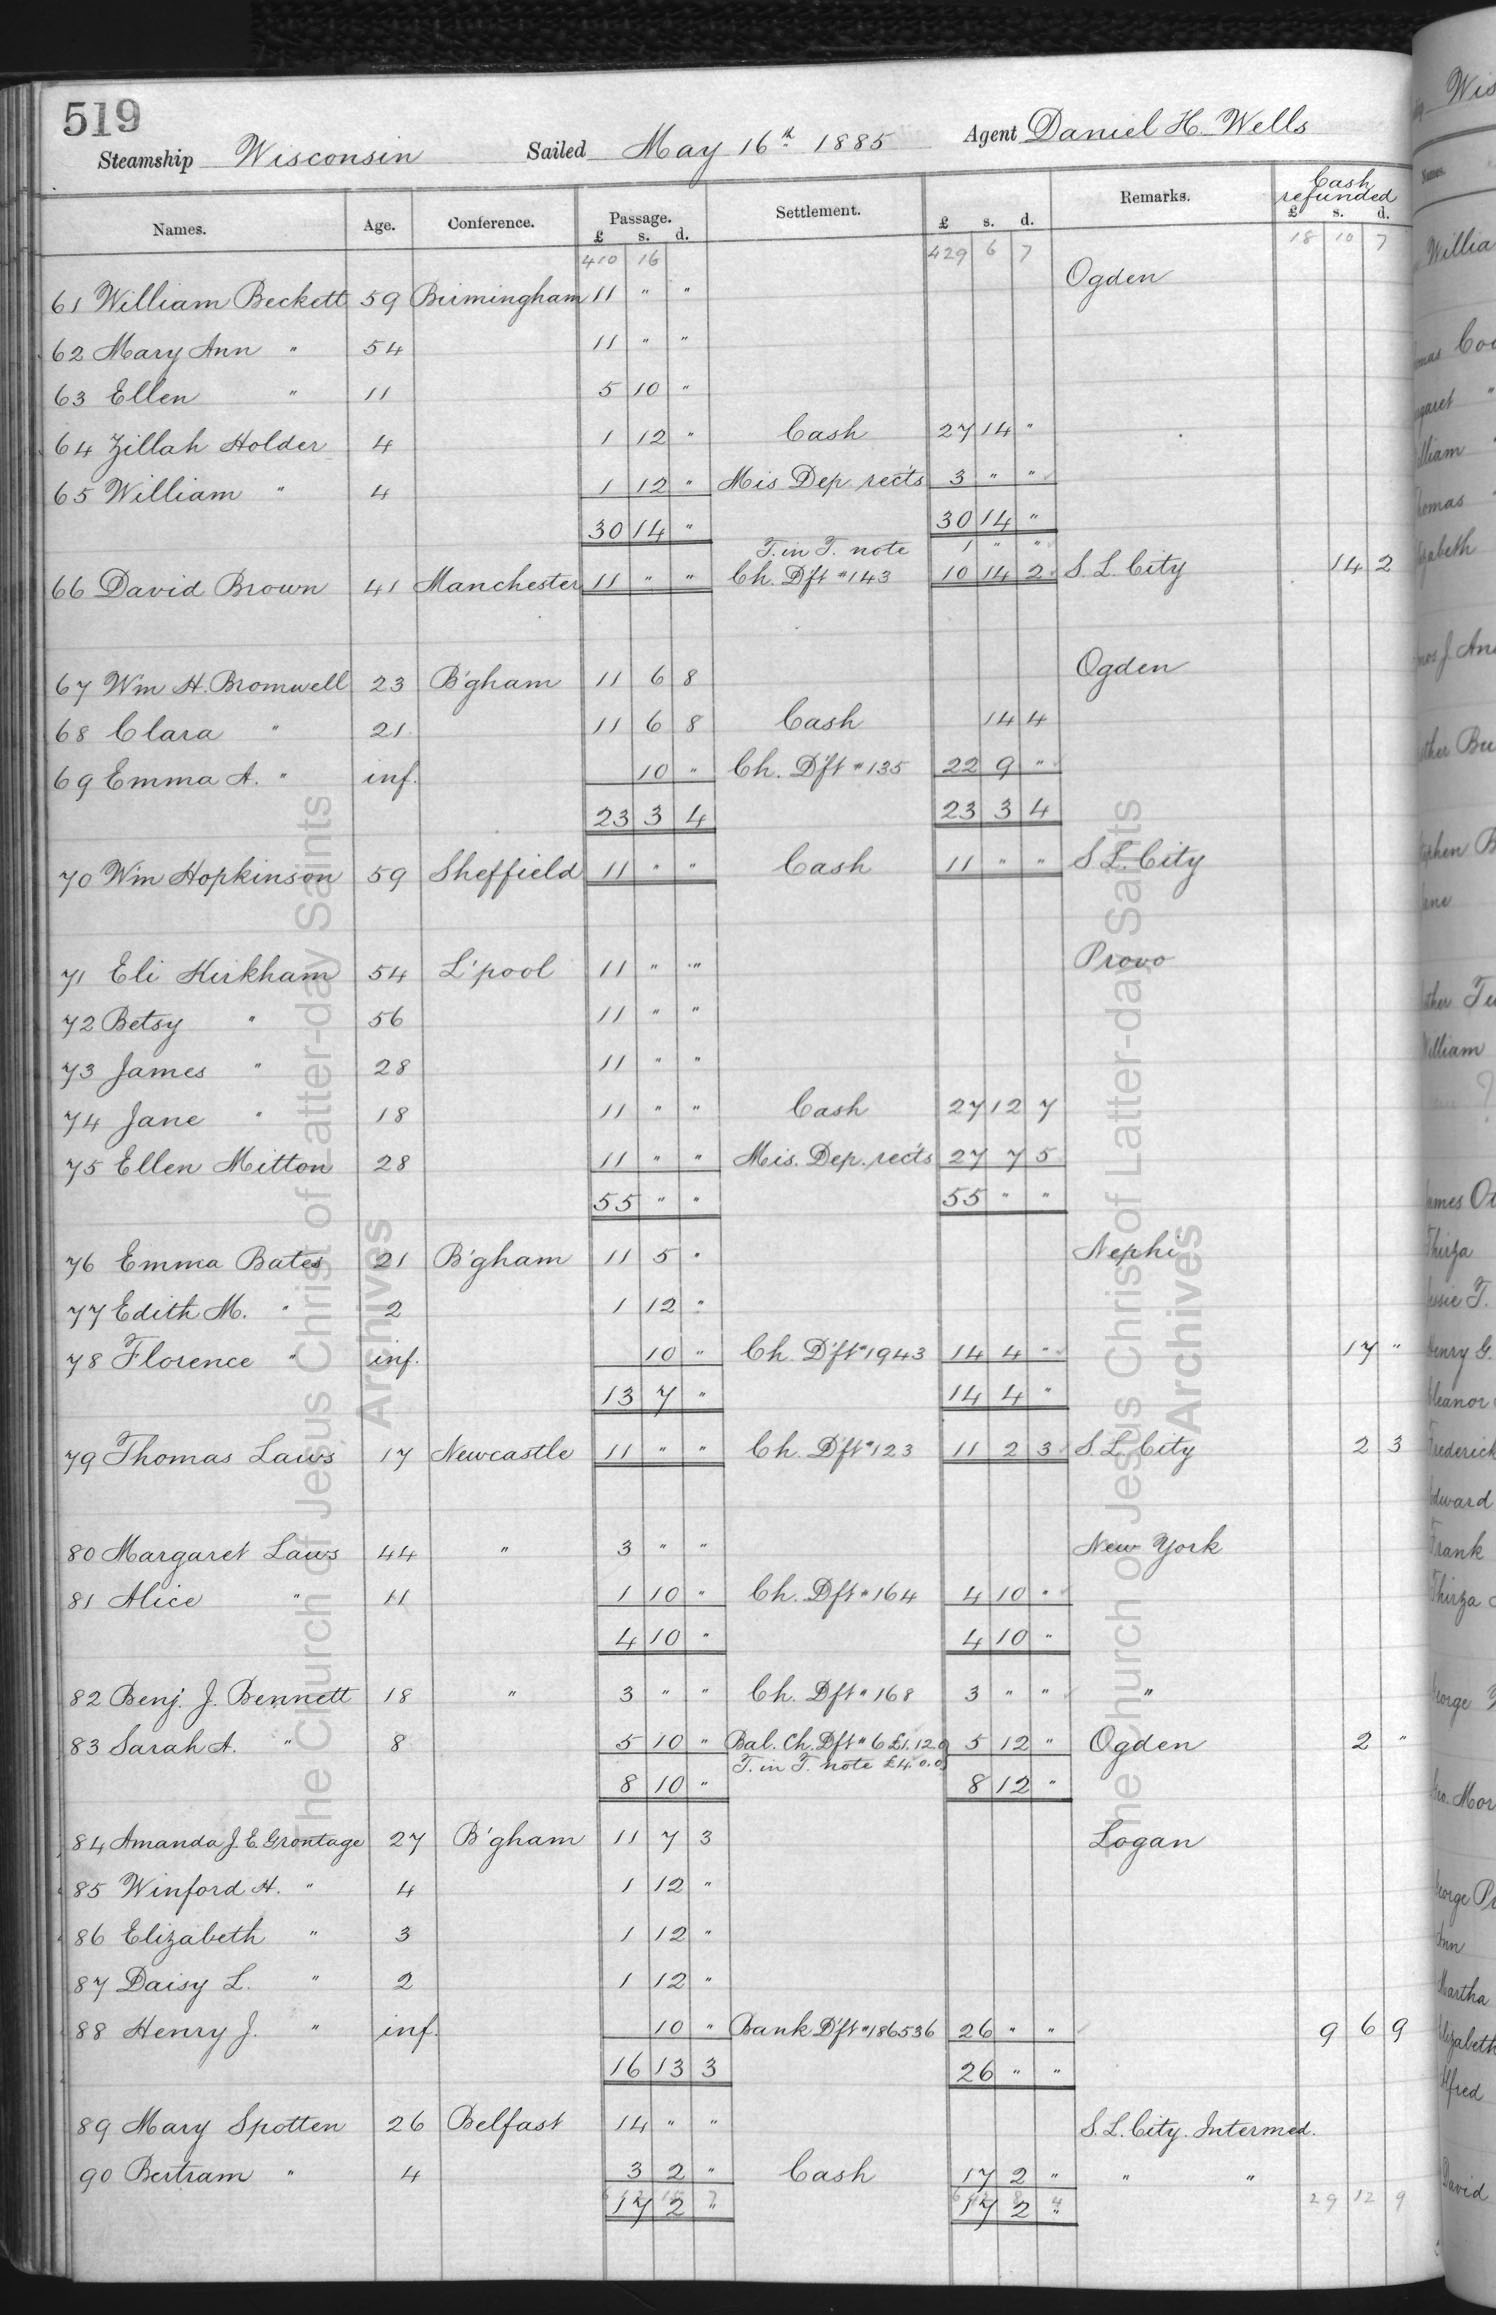 519
Steamship Wisconsin Sailed May 16th 1885 Agent Daniel H. Wells
Names. Age. Conference. Passage. £ s. d. Settlement. £ s. d. Remarks. Cash refunded £ s. d.
410 16 429 6 7 18 10 7
61 William Beckett 59 Birmingham 11 " " Ogden
62 Mary Ann " 54 11 " "
63 Ellen " 11 5 10 "
64 Zillah Holder 4 1 12 " Cash 27 14 "
65 William " 4 1 12 " Mis Dep rects 3 " "
30 14 " 30 14 "
T. in T. note 1 " "
66 David Brown 41 Manchester 11 " " Ch. Dft #143 10 14 2 S. L. City 14 2
67 Wm H. Bromwell 23 B'gham 11 6 8 Ogden
68 Clara " 21 11 6 8 Cash 14 4
69 Emma A. " inf. 10 " Ch. Dft #135 22 9 "
23 3 4 23 3 4
70 Wm Hopkinson 59 Sheffield 11 " " Cash 11 " " S. L. City
71 Eli Kirkham 54 L'pool 11 " " Provo
72 Betsy " 56 11 " "
73 James " 28 11 " "
74 Jane " 18 11 " " Cash 27 12 7
75 Ellen Mitton 28 11 " " Mis. Dep. rects 27 7 5
55 " " 55 " "
76 Emma Bates 21 B'gham 11 5 " Nephi
77 Edith M. " 2 1 12 "
78 Florence " inf. 10 " Ch. Dft #1943 14 4 " 17 "
13 7 " 14 4 "
79 Thomas Laws 17 Newcastle 11 " " Ch. Dft #123 11 2 3 S. L. City 2 3
80 Margaret Laws 44 " 3 " " New York
81 Alice " 11 1 10 " Ch. Dft #164 4 10 "
4 10 " 4 10 "
82 Benj. J. Bennett 18 " 3 " " Ch. Dft #168 3 " " "
83 Sarah A. " 8 5 10 " Bal. Ch. Dft #6 £1.12.0 5 12 " Ogden 2 "
T. in T. note £4.0.0
8 10 " 8 12 "
84 Amanda J. E. Grontage 27 B'gham 11 7 3 Logan
85 Winford H. " 4 1 12 "
86 Elizabeth " 3 1 12 "
87 Daisy L. " 2 1 12 "
88 Henry J. " inf. 10 " Bank Dft #186536 26 " " 9 6 9
16 13 3 26 " "
89 Mary Spotten 26 Belfast 14 " " S. L. City. Intermed.
90 Bertram " 4 3 2 " Cash 17 2 " " "
17 2 " 17 2 "
29 12 9
The Church of Jesus Christ of Latter-day Saints
Archives
The Church of Jesus Christ of Latter-day Saints
Archives